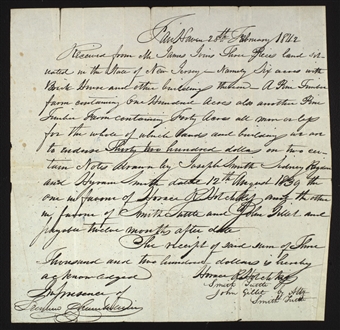 Fair Haven 28th February 1842
Received from Mr James Ivins Three Pieces land sit-
uated in the State of New Jersey - Namely Six acres with
Brick House and other building thereon - A Pine Timber
farm containing One Hundred Acres also another Pine
Timber Farm containing Forty Acres all more or less
for the whole of which lands and building we are
to endorse Thirty two hundred dollars on two cer-
tain Notes drawn by Joseph Smith Sidney Rigdon
and Hyrum Smith dated 12th August 1839 the
one in favour of Horace R Hotchkiss and the other
in favour of Smith Tuttle and John Gillet and
payable twelve months after date
The receipt of said sum of Three
Thousand and two hundred dollars is hereby
acknowledged
In presence of
Horace R Hotchkiss
Smith Tuttle
John Gillet by Atty
Smith Tuttle